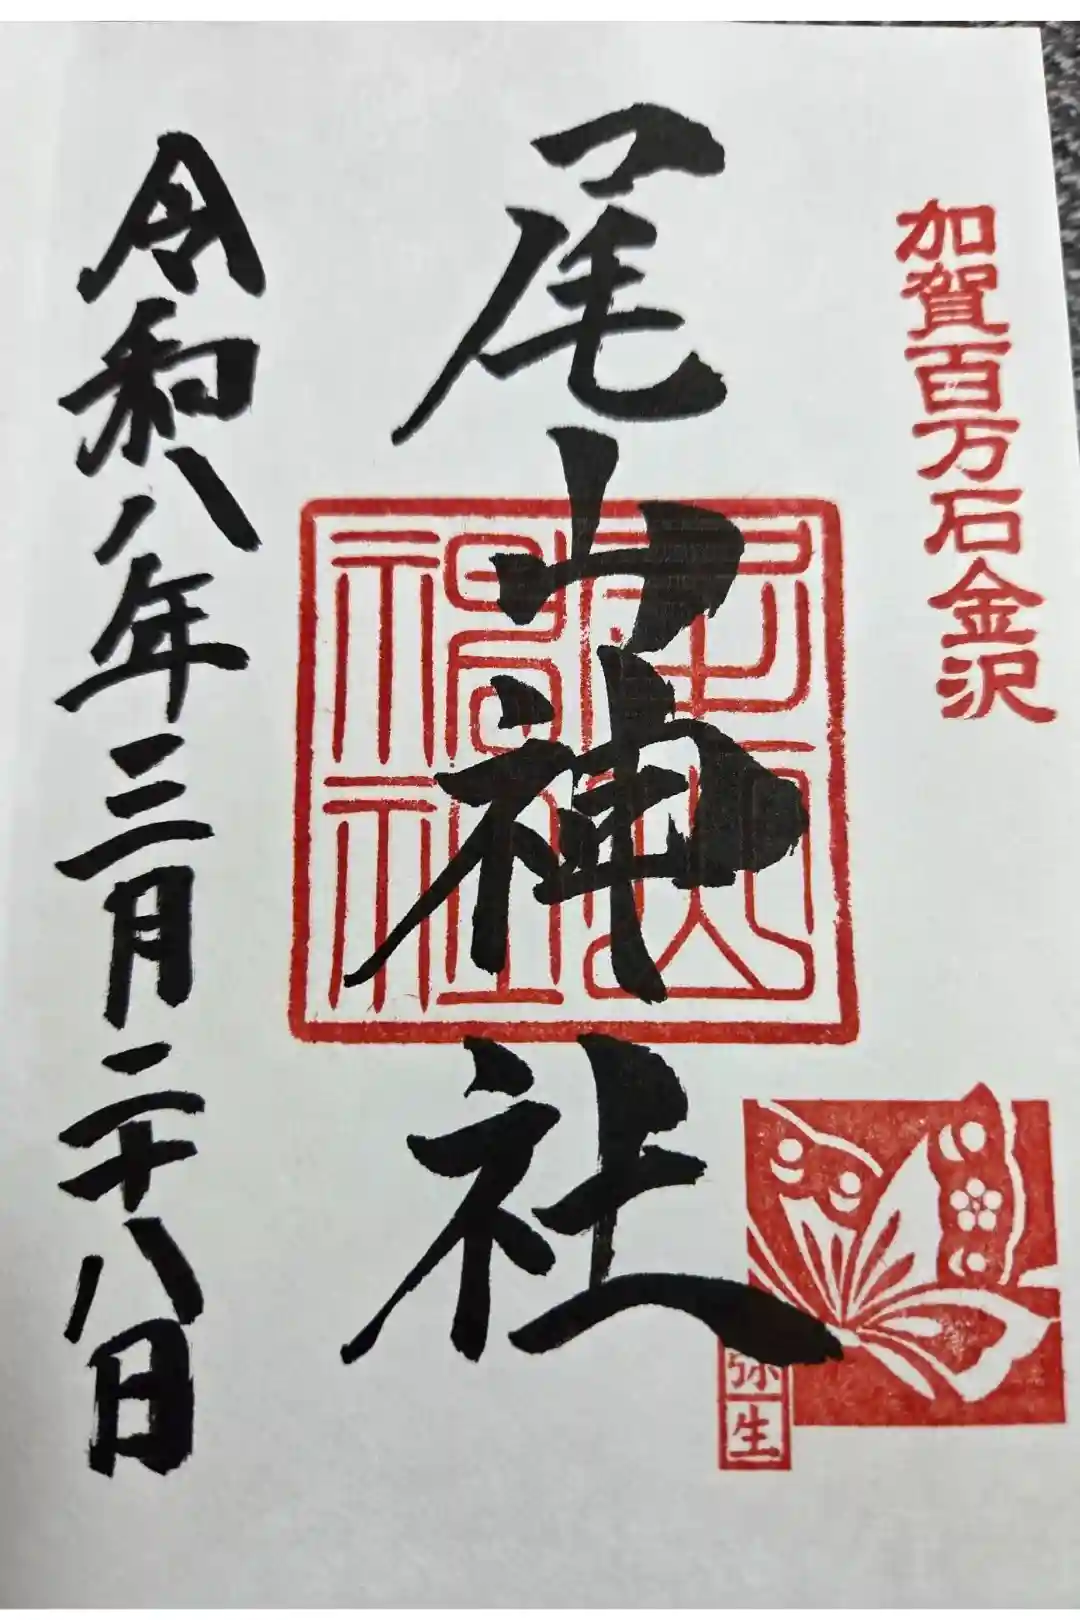 加賀百万石金沢
尾山神社
尾山神社
弥生
令和八年三月二十八日